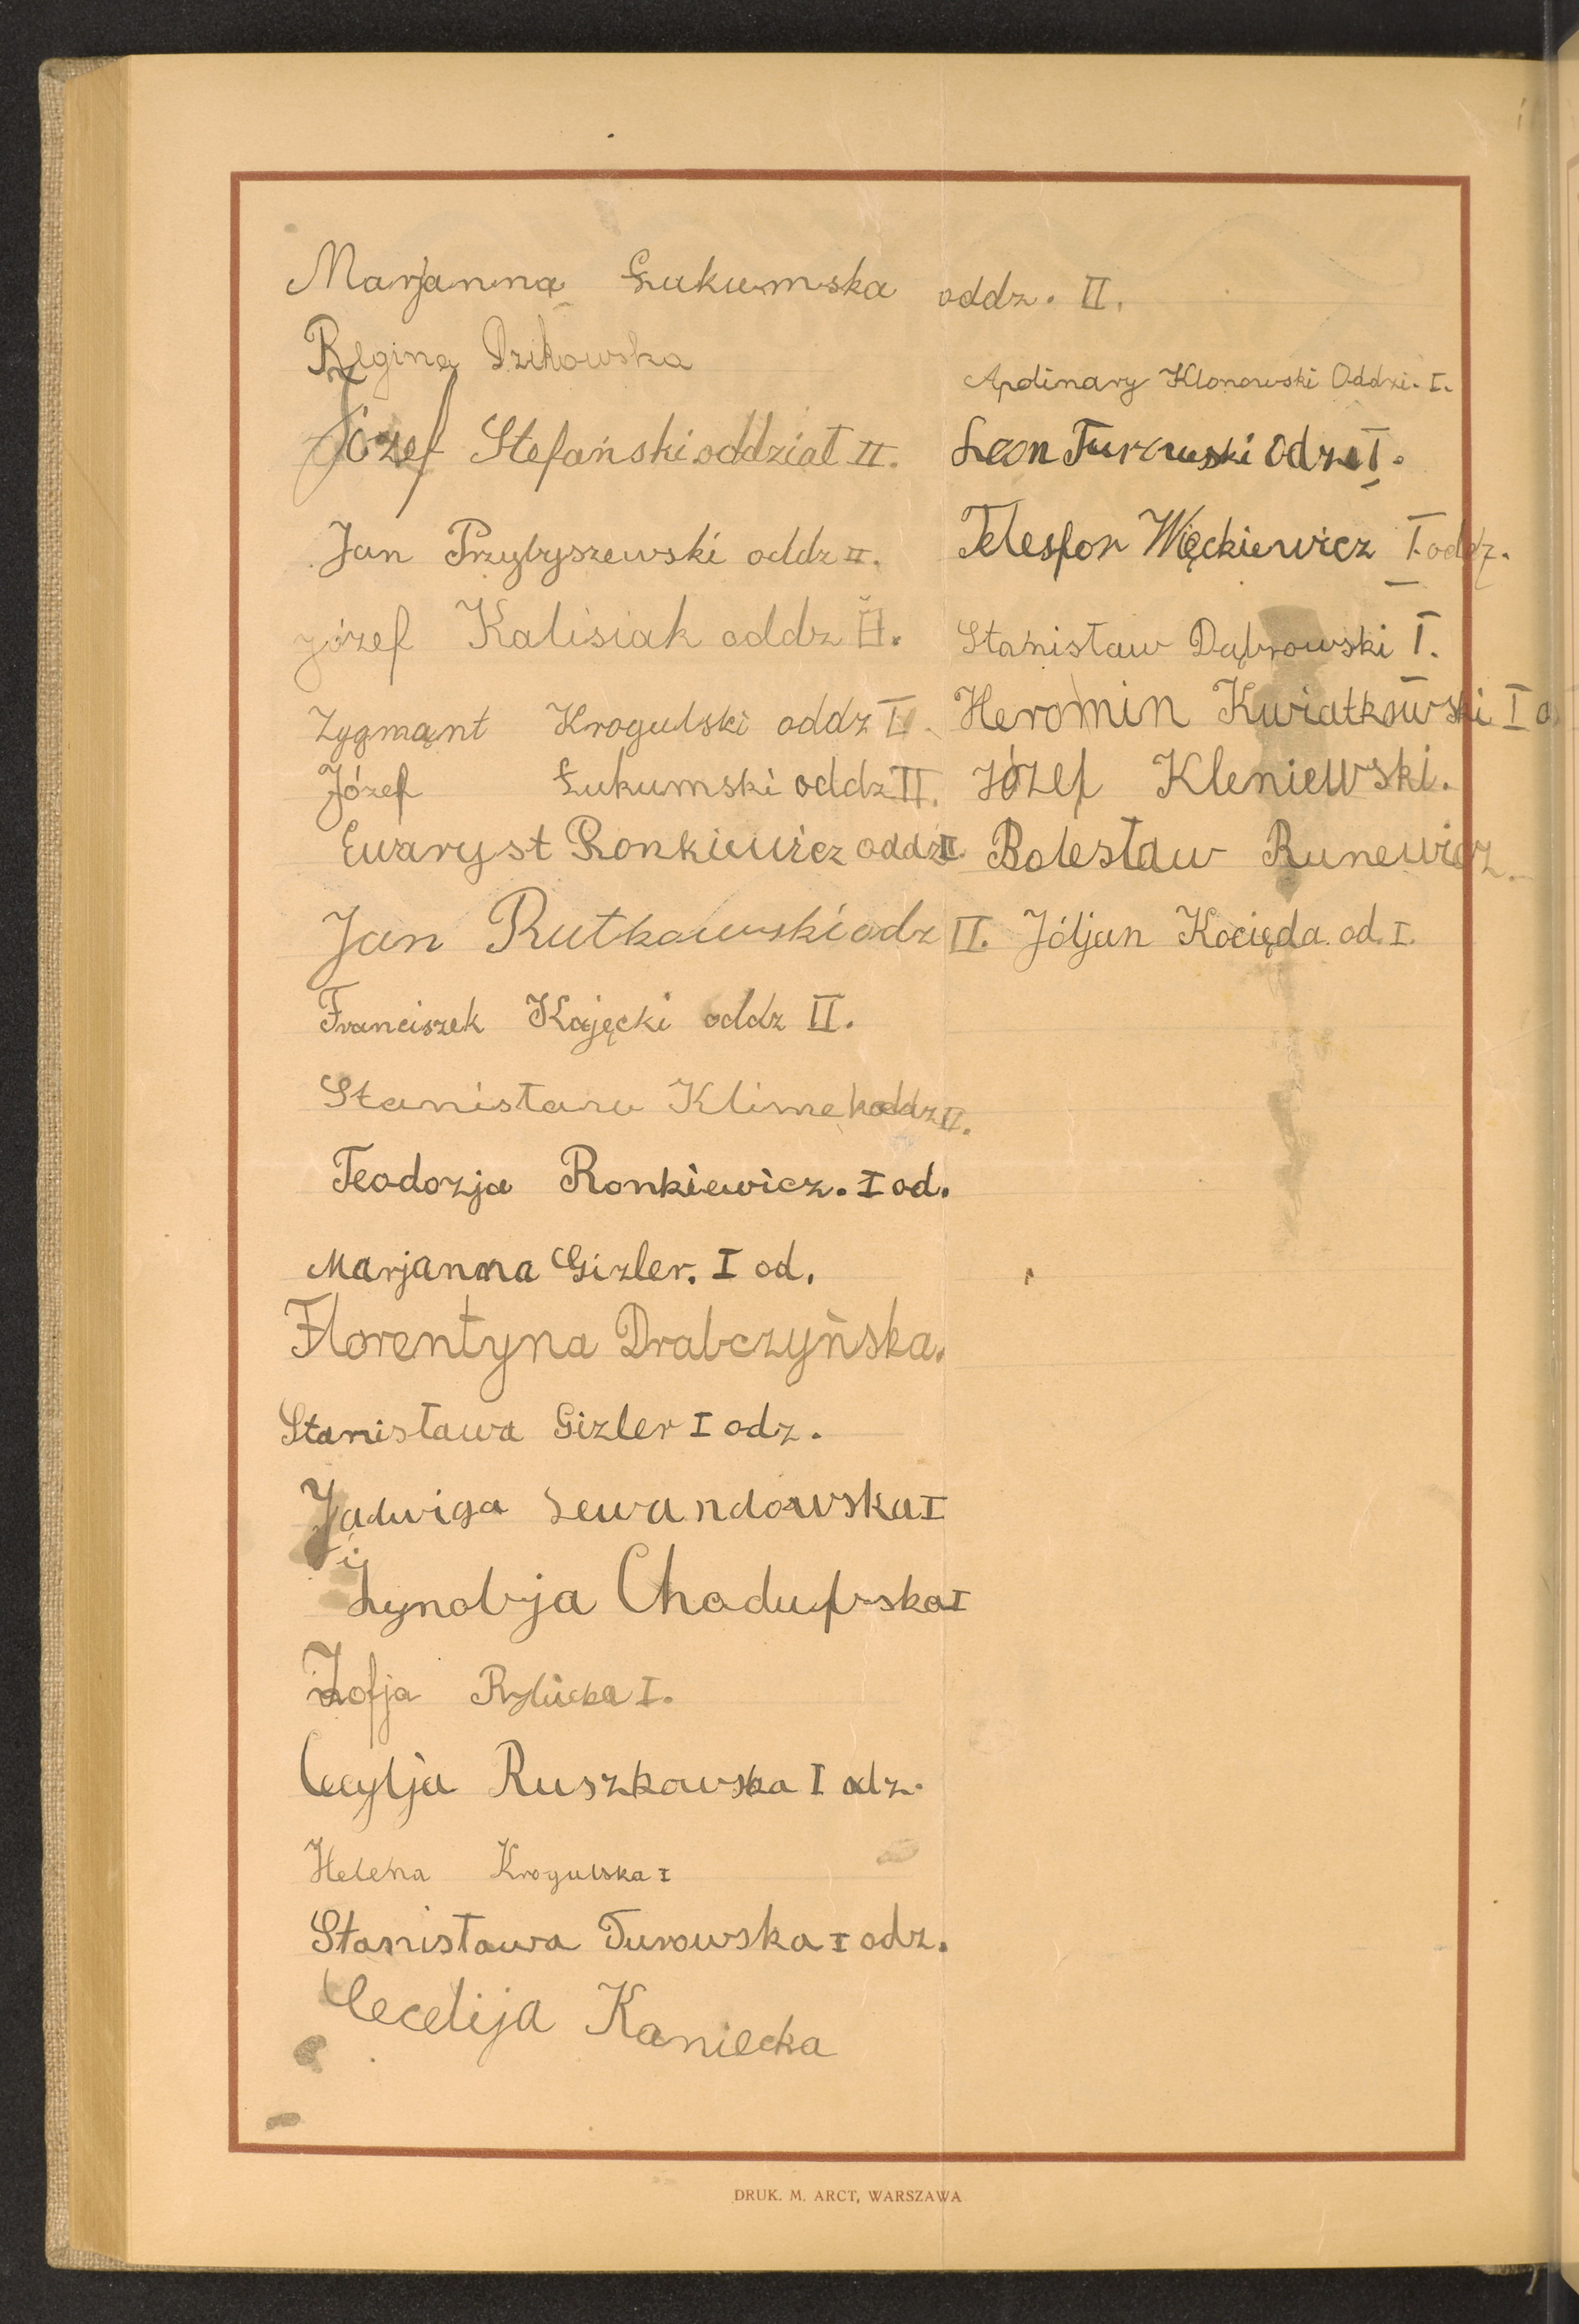 Marjanna Łukumska oddz. II.
Regina Dzikowska
Józef Stefański oddział II.
Jan Przybyszewski oddz II.
Józef Kalisiak oddz II.
Zygmunt Krogulski oddz II.
Józef Łukumski oddz II.
Ewaryst Ronkiewicz oddz II.
Jan Rutkowski odz II.
Franciszek Kajęcki oddz II.
Stanisław Klimek oddz II.
Teodozja Ronkiewicz. I od.
Marjanna Gizler. I od.
Florentyna Drabczyńska.
Stanisława Gizler I odz.
Jadwiga Lewandowska I
I
Zofja I.
Cecylja Ruszkowska I odz.
Helena Krogulska I
Stanisława Turowska I odz.
Cecelija Kaniecka
Apolinary Klonowski Oddzi. I.
Leon I.
Telesfor Więckiewicz I oddz.
Stanisław Dąbrowski I.
Heromin Kwiatkowski I o
Józef Kleniewski.
Bolesław Runewicz.
Jóljan Kocięda. od. I.
DRUK. M. ARCT, WARSZAWA